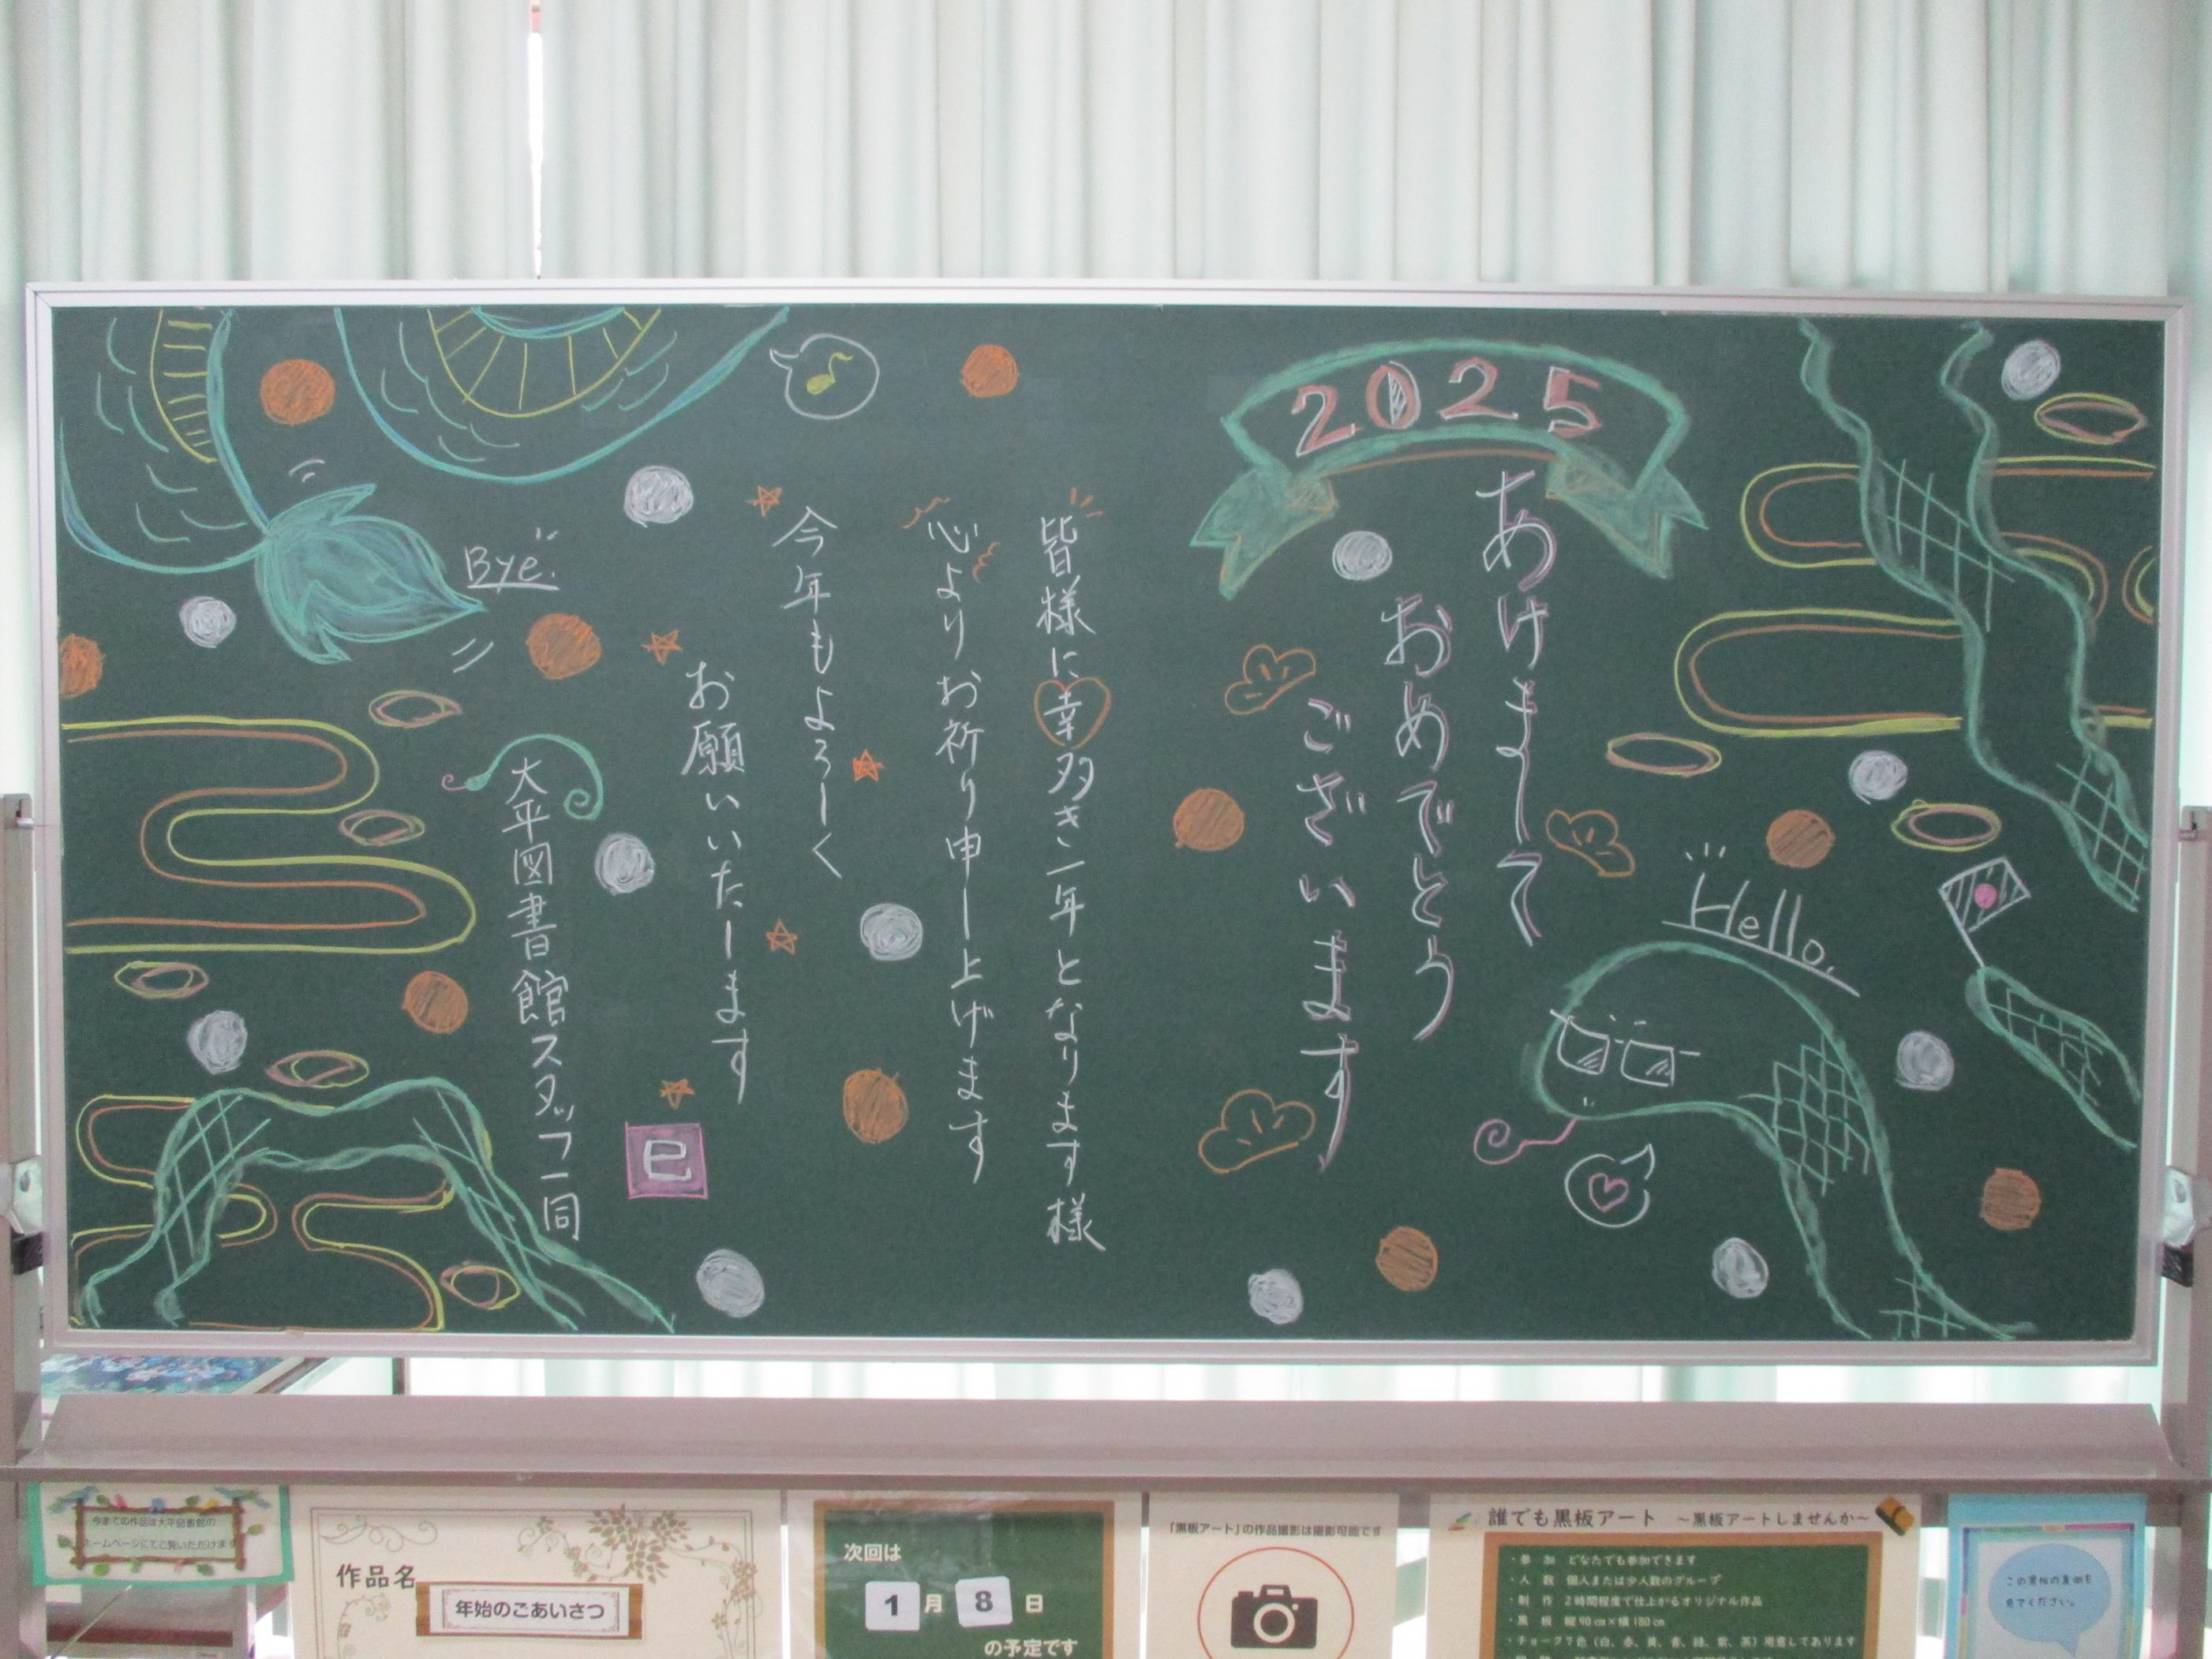 2025
あけまして
おめでとう
ございます
皆様に幸多き一年となります様
心よりお祈り申し上げます
今年もよろしく
お願いいたします
大平図書館スタッフ一同
巳
Hello.
Bye.
今までの作品は大平図書館の
ホームページにてご覧いただけます
作品名
年始のごあいさつ
次回は
1月8日
の予定です
「黒板アート」の作品撮影は撮影可能です
誰でも黒板アート ～黒板アートしませんか～
・参 加 どなたでも参加できます
・人 数 個人または少人数のグループ
・制 作 2時間程度で仕上がるオリジナル作品
・黒 板 縦90cm×横180cm
・チョーク7色（白、赤、黄、青、緑、紫、茶）用意してあります
この黒板の裏側も
見てください。